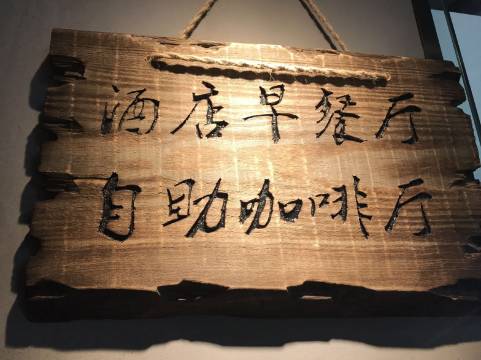 酒店早餐厅
自助咖啡厅